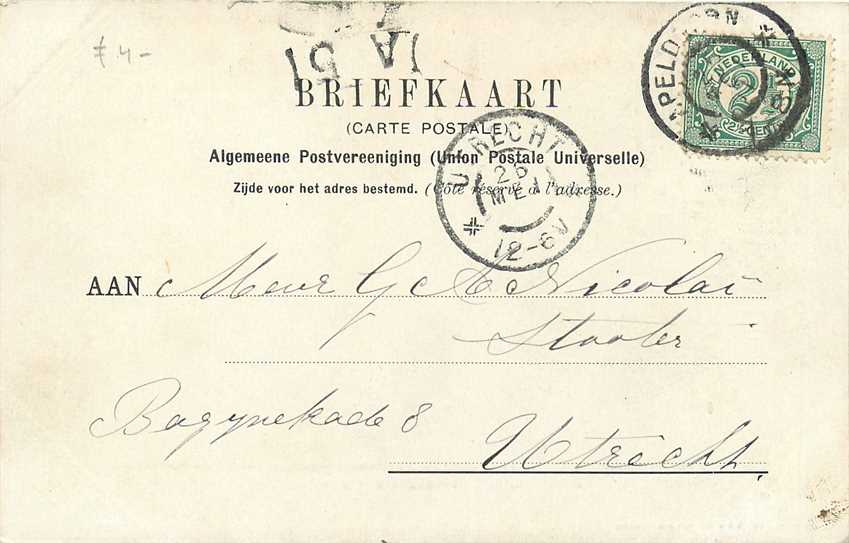 ƒ 4-
BRIEFKAART
(CARTE POSTALE)
Algemeene Postvereeniging (Union Postale Universelle)
Zijde voor het adres bestemd. (Côté réservé à l'adresse.)
APELDOORN
NEDERLAND
2½
2½ CENT
UTRECHT
26
MEI
12-6V
AAN Nicolaï
Bagynekade 8
Utrecht,